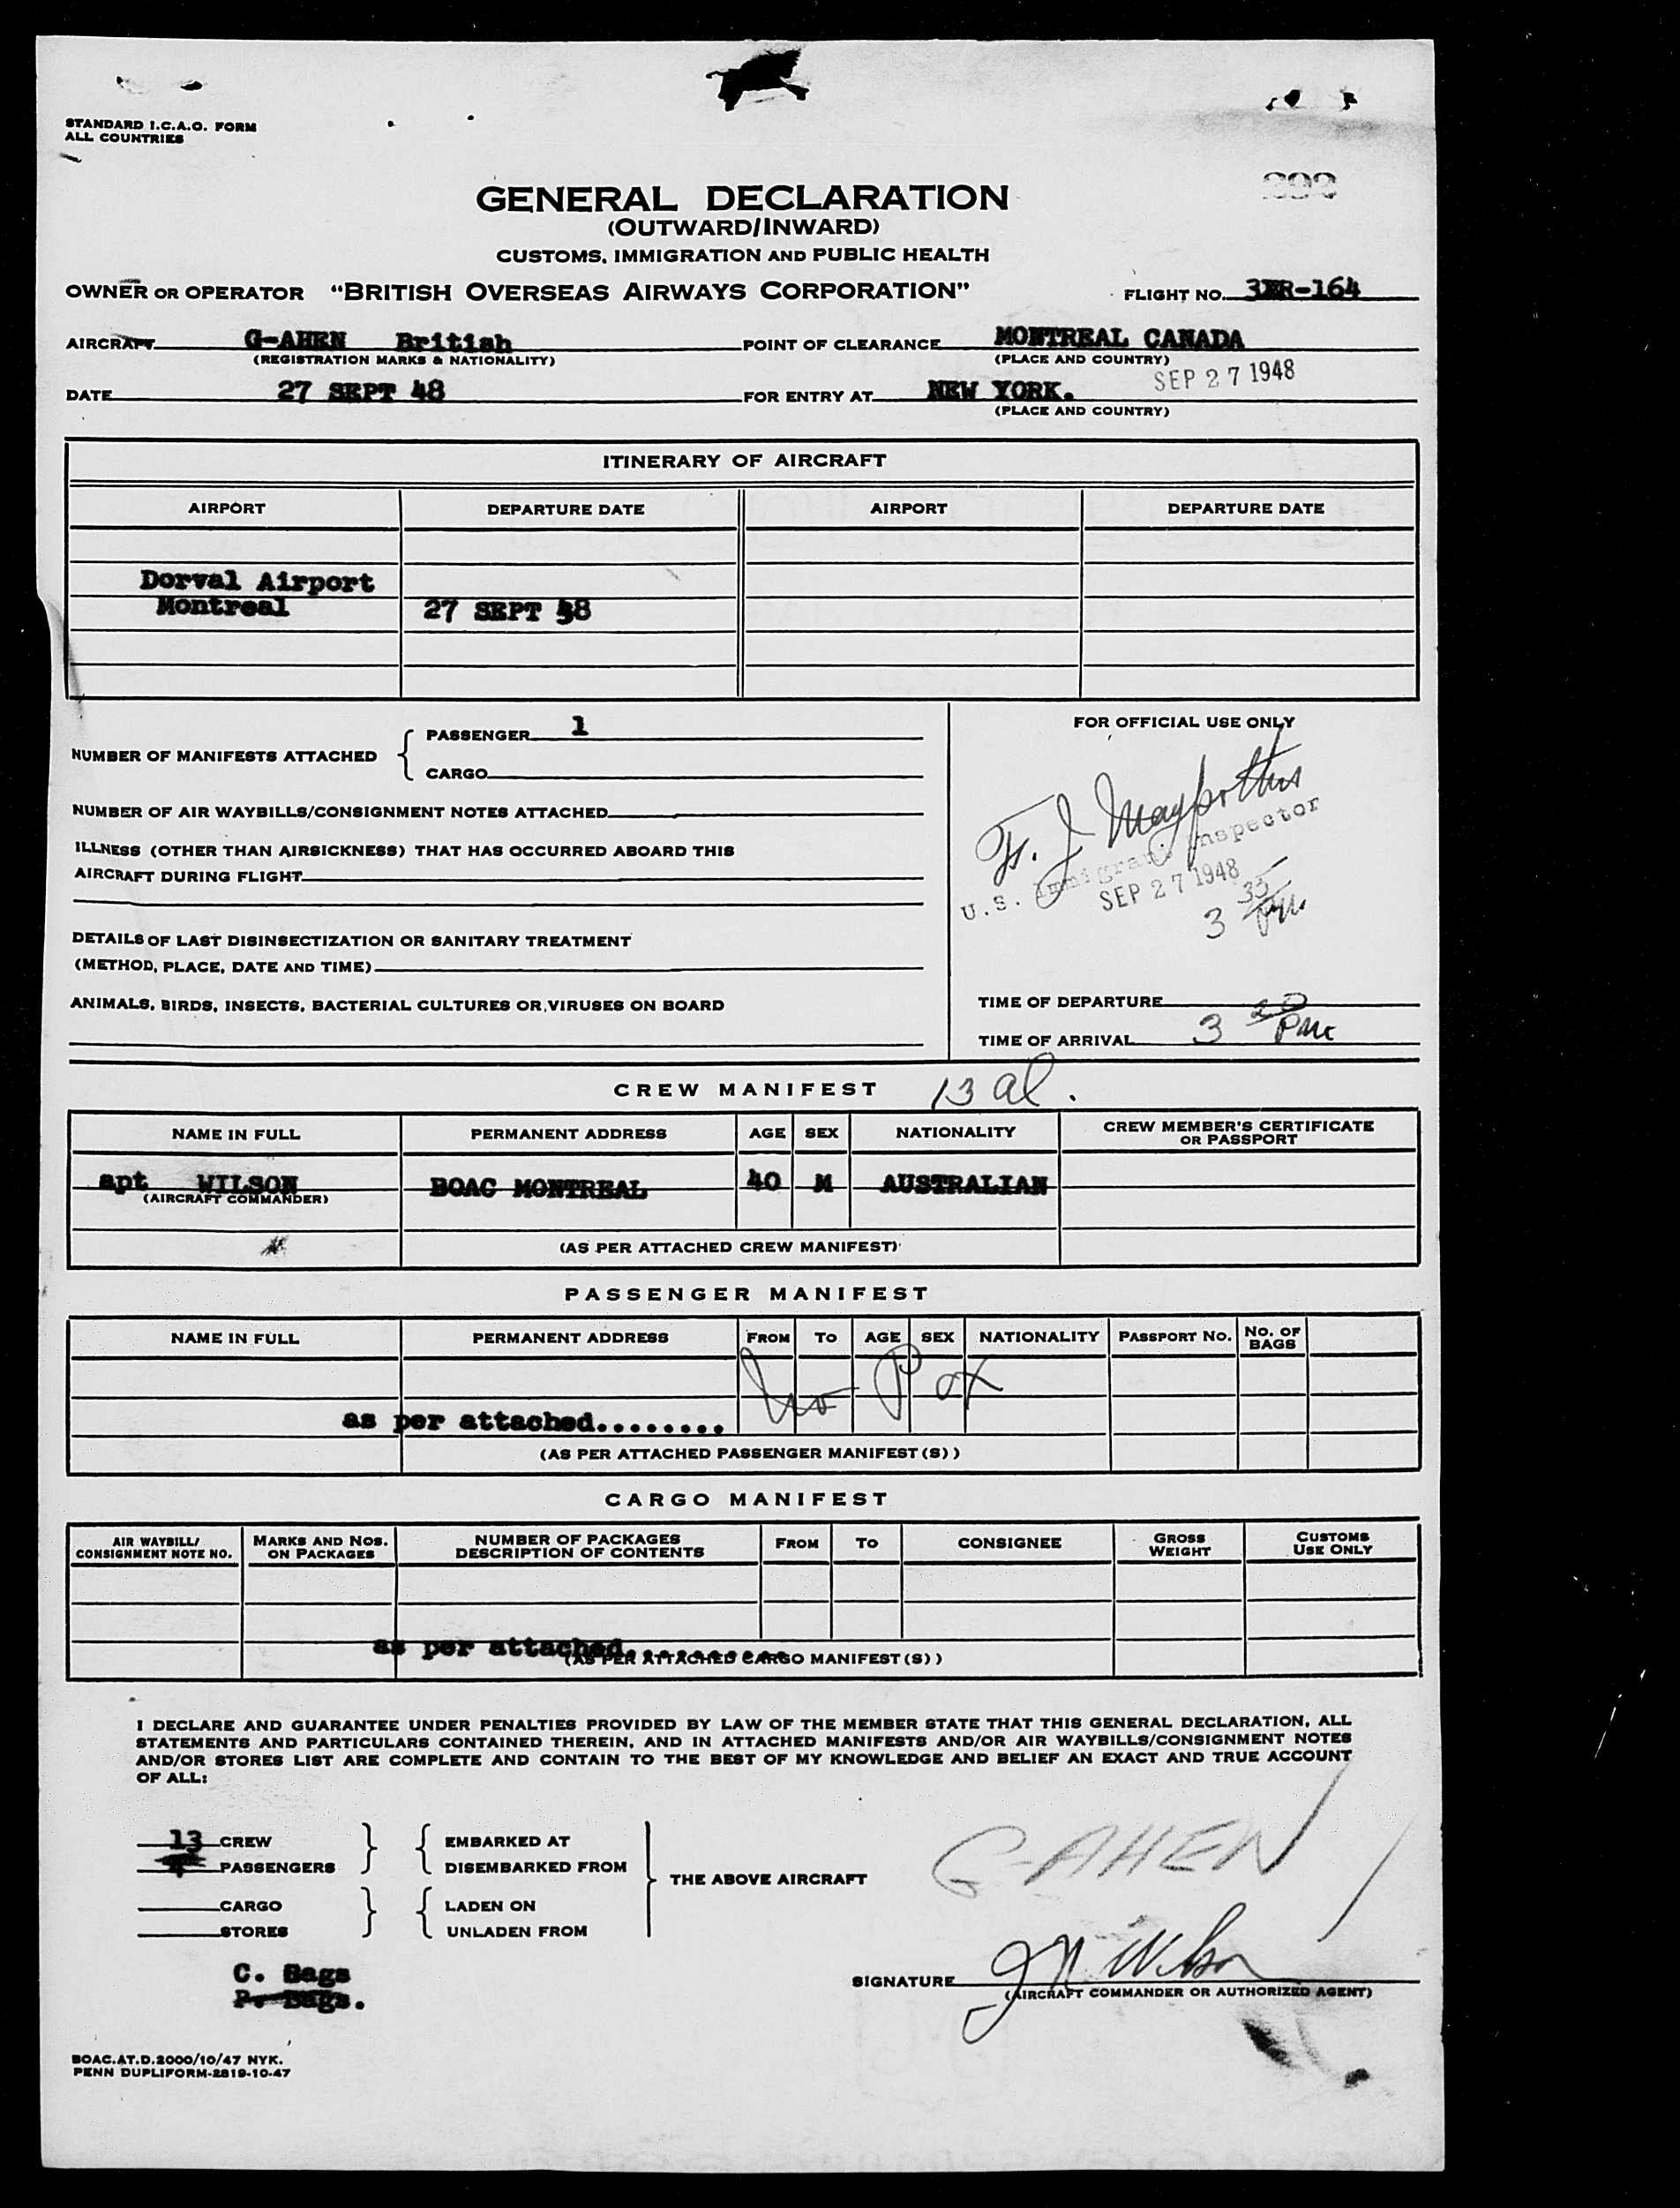 STANDARD I.C.A.O. FORM
ALL COUNTRIES
GENERAL DECLARATION
(OUTWARD/INWARD)
CUSTOMS, IMMIGRATION AND PUBLIC HEALTH
OWNER OR OPERATOR "BRITISH OVERSEAS AIRWAYS CORPORATION" FLIGHT NO.
AIRCRAFT G-AHEN British POINT OF CLEARANCE MONTREAL CANADA
(REGISTRATION MARKS & NATIONALITY) (PLACE AND COUNTRY)
SEP 27 1948
DATE 27 SEPT 48 FOR ENTRY AT NEW YORK.
(PLACE AND COUNTRY)
ITINERARY OF AIRCRAFT
AIRPORT DEPARTURE DATE AIRPORT DEPARTURE DATE
Dorval Airport
Montreal 27 SEPT 48
NUMBER OF MANIFESTS ATTACHED
PASSENGER 1
CARGO
NUMBER OF AIR WAYBILLS/CONSIGNMENT NOTES ATTACHED
ILLNESS (OTHER THAN AIRSICKNESS) THAT HAS OCCURRED ABOARD THIS
AIRCRAFT DURING FLIGHT
DETAILS OF LAST DISINSECTIZATION OR SANITARY TREATMENT
(METHOD, PLACE, DATE AND TIME)
ANIMALS, BIRDS, INSECTS, BACTERIAL CULTURES OR VIRUSES ON BOARD
FOR OFFICIAL USE ONLY
F. J.
U.S. Immigrant Inspector
SEP 27 1948
3 35 pm.
TIME OF DEPARTURE
TIME OF ARRIVAL 3 20 PM
CREW MANIFEST 13 al.
NAME IN FULL PERMANENT ADDRESS AGE SEX NATIONALITY CREW MEMBER'S CERTIFICATE
OR PASSPORT
apt WILSON BOAC MONTREAL 40 M AUSTRALIAN
(AIRCRAFT COMMANDER)
(AS PER ATTACHED CREW MANIFEST)
PASSENGER MANIFEST
NAME IN FULL PERMANENT ADDRESS FROM TO AGE SEX NATIONALITY PASSPORT NO. NO. OF
BAGS
No Pax
as per attached........
(AS PER ATTACHED PASSENGER MANIFEST(S))
CARGO MANIFEST
AIR WAYBILL/
CONSIGNMENT NOTE NO. MARKS AND NOS.
ON PACKAGES NUMBER OF PACKAGES
DESCRIPTION OF CONTENTS FROM TO CONSIGNEE GROSS
WEIGHT CUSTOMS
USE ONLY
as per attached..........
(AS PER ATTACHED CARGO MANIFEST(S))
I DECLARE AND GUARANTEE UNDER PENALTIES PROVIDED BY LAW OF THE MEMBER STATE THAT THIS GENERAL DECLARATION, ALL
STATEMENTS AND PARTICULARS CONTAINED THEREIN, AND IN ATTACHED MANIFESTS AND/OR AIR WAYBILLS/CONSIGNMENT NOTES
AND/OR STORES LIST ARE COMPLETE AND CONTAIN TO THE BEST OF MY KNOWLEDGE AND BELIEF AN EXACT AND TRUE ACCOUNT
OF ALL:
13 CREW EMBARKED AT
PASSENGERS DISEMBARKED FROM
THE ABOVE AIRCRAFT
CARGO LADEN ON
STORES UNLADEN FROM
G-AHEN
C. Bags
P. Bags.
SIGNATURE J N Wilson
(AIRCRAFT COMMANDER OR AUTHORIZED AGENT)
BOAC.AT.D.2000/10/47 NYK.
PENN DUPLIFORM-2819-10-47